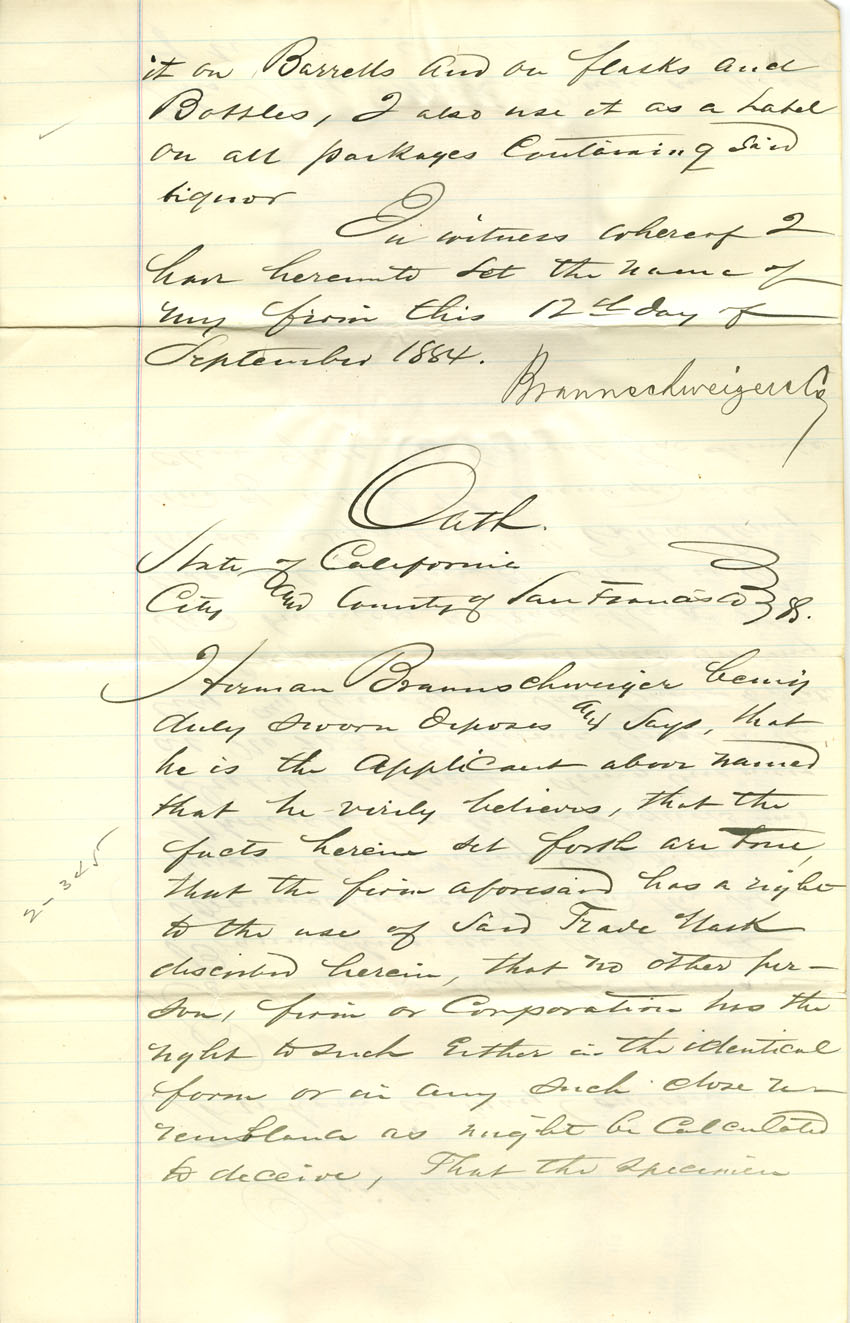 it on Barrells and on flasks and
Bottles, I also use it as a Label
on all packages Containing said
liquor
In witness whereof I
have hereunto set the name of
my firm this 12th day of
September 1884.
Braunschweiger & Co
Oath.
State of California
City and County of San Francisco ss.
I Herman Braunschweiger being
duly sworn deposes and says, that
he is the applicant above named
that he verily believes, that the
facts herein set forth are true,
that the firm aforesaid has a right
to the use of said Trade Mark
discribed herein, that no other per-
son, firm or Corporation has the
right to such Either in the identical
form or in any such close re-
semblance as might be Calculated
to deceive, That the specimen
2-345